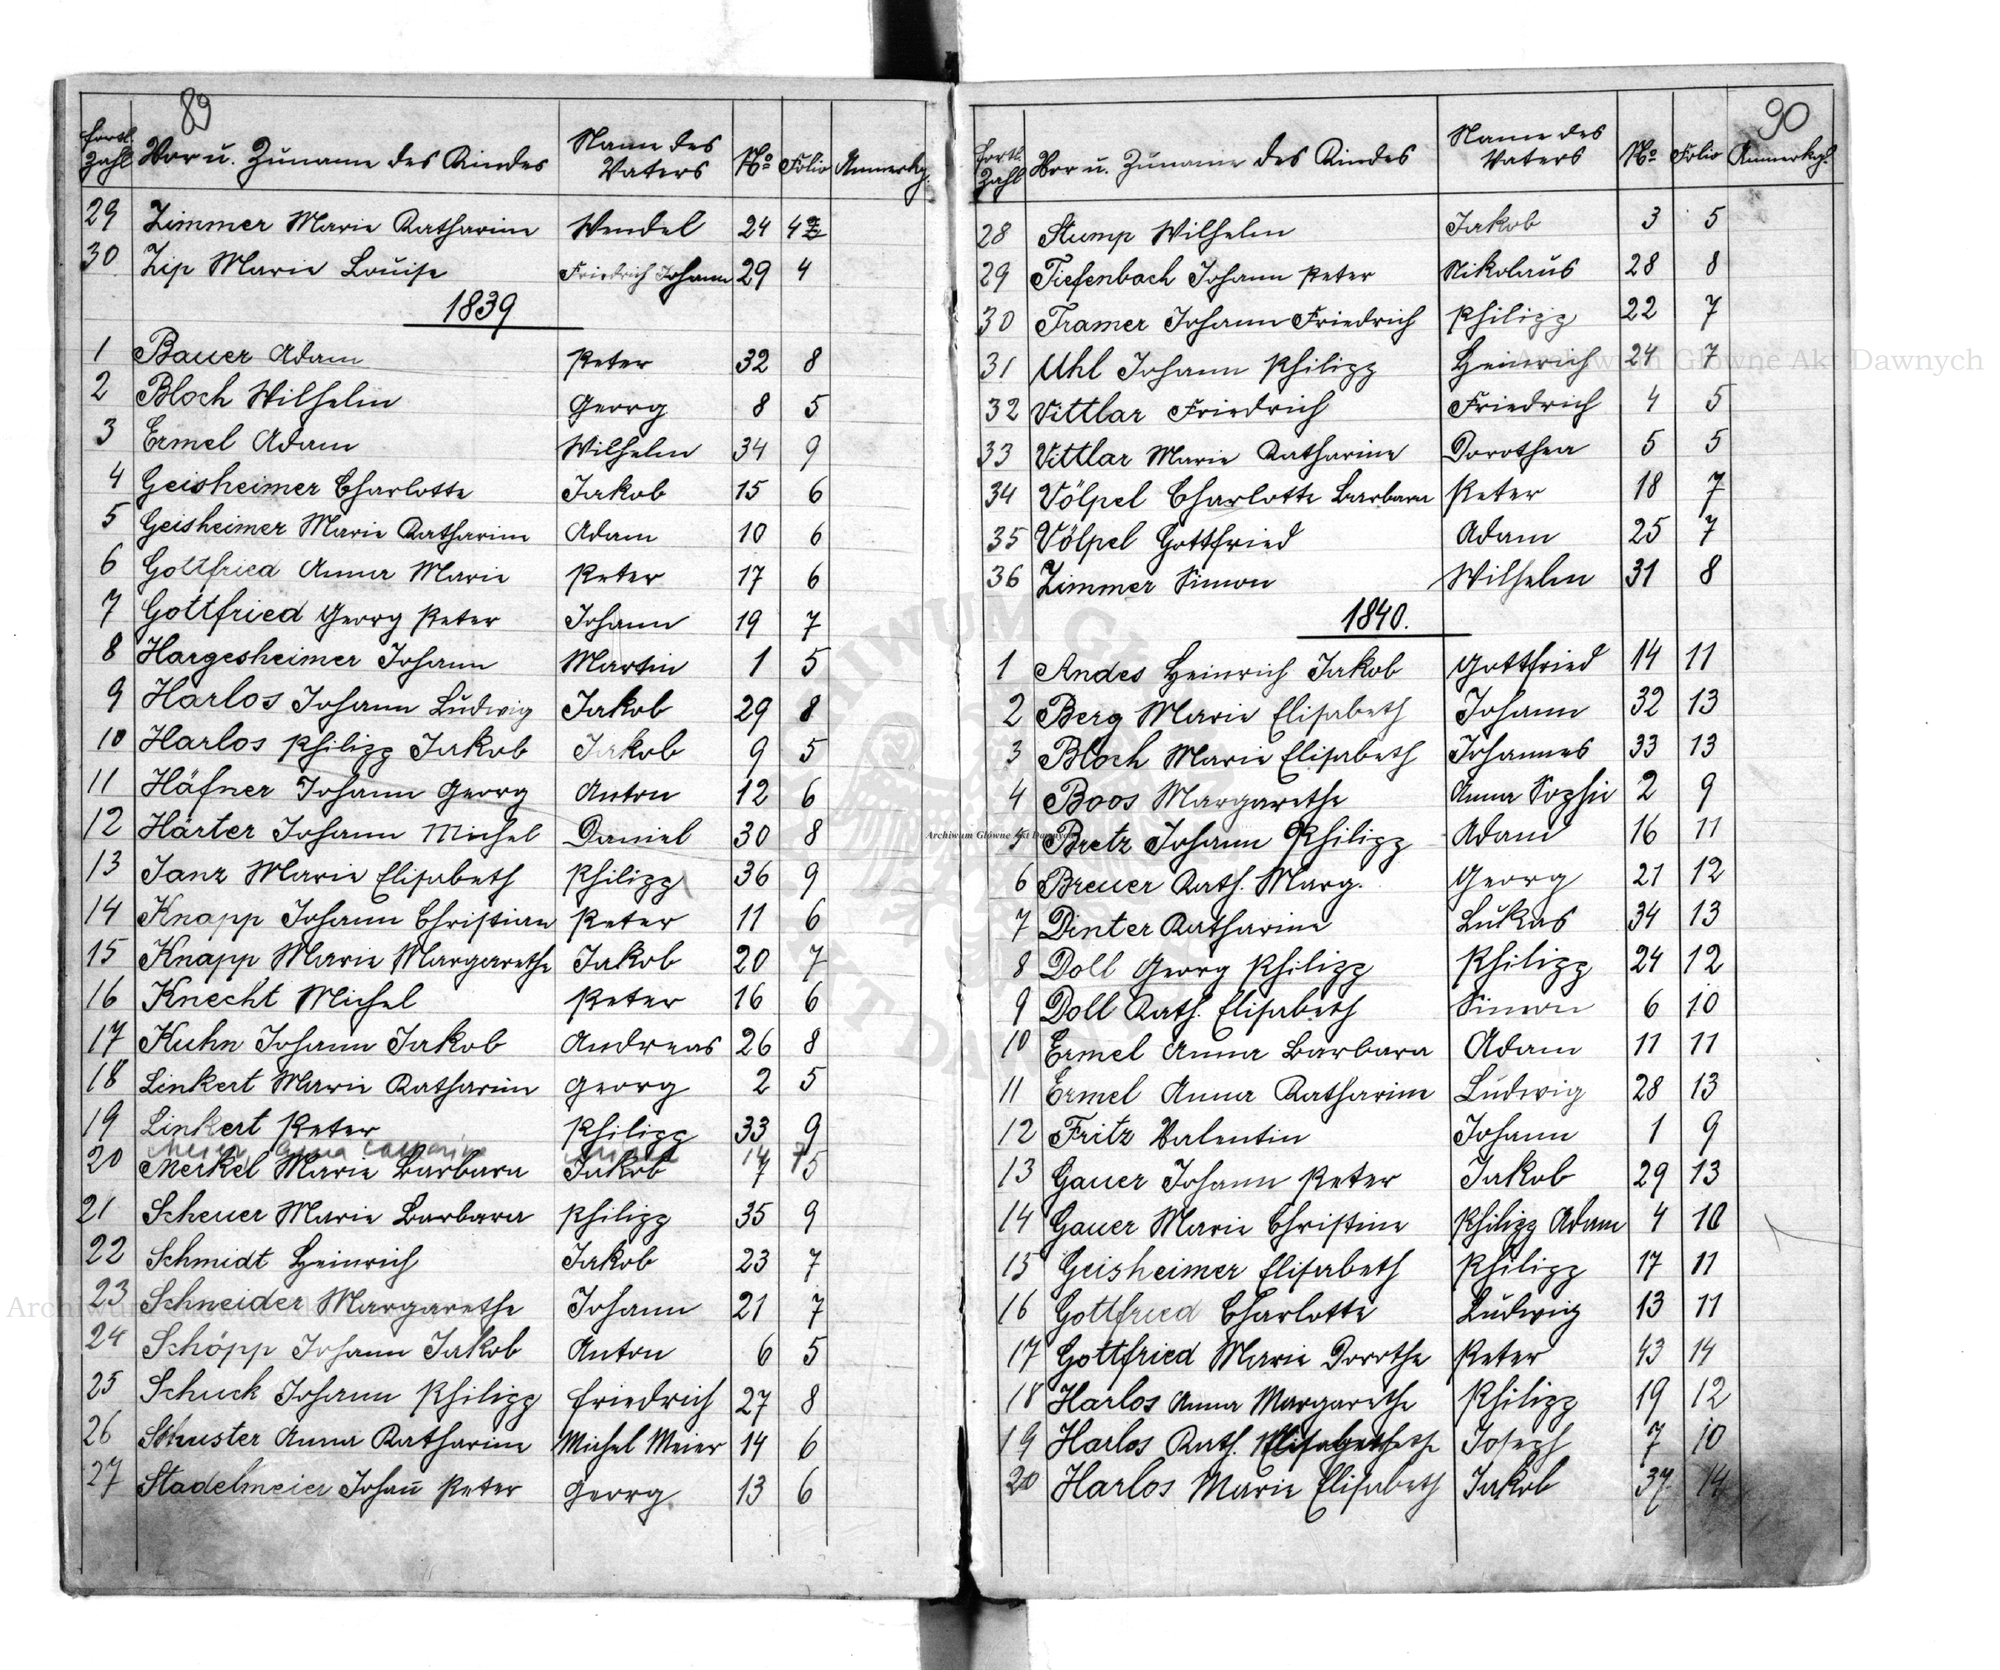 89
Fortl. Zahl Vor u. Zuname des Kindes Name des Vaters No Folio Anmerkg.
29 Zimmer Marie Katharina Wendel 24 4
30 Zip Marie Louise Friedrich Johann 29 4
1839
1 Bauer Adam Peter 32 8
2 Bloch Wilhelm Georg 8 5
3 Ermel Adam Wilhelm 34 9
4 Geisheimer Charlotte Jakob 15 6
5 Geisheimer Marie Katharina Adam 10 6
6 Gottfried Anna Marie Peter 17 6
7 Gottfried Georg Peter Johann 19 7
8 Hargesheimer Johann Martin 1 5
9 Harlos Johann Ludwig Jakob 29 8
10 Harlos Philipp Jakob Jakob 9 5
11 Häfner Johann Georg Anton 12 6
12 Härter Johann Michel Daniel 30 8
13 Janz Marie Elisabeth Philipp 36 9
14 Knapp Johann Christian Peter 11 6
15 Knapp Marie Margarethe Jakob 20 7
16 Knecht Michel Peter 16 6
17 Kuhn Johann Jakob Andreas 26 8
18 Linkert Marie Katharina Georg 2 5
19 Linkert Peter Philipp 33 9
Meier Anna Catharina 14
20 Merkel Marie Barbara Jakob 7 5
21 Scheuer Marie Barbara Philipp 35 9
22 Schmidt Heinrich Jakob 23 7
23 Schneider Margarethe Johann 21 7
24 Schöpp Johann Jakob Anton 6 5
25 Schuck Johann Philipp Friedrich 27 8
26 Schuster Anna Katharina Michel Meier 14 6
27 Stadelmeier Johañ Peter Georg 13 6
90
Fortl. Zahl Vor u. Zuname des Kindes Name des Vaters No Folio Anmerkg.
28 Stump Wilhelm Jakob 3 5
29 Tiefenbach Johann Peter Nikolaus 28 8
30 Tramer Johann Friedrich Philipp 22 7
31 Uhl Johann Philipp Heinrich 24 7
32 Vittlar Friedrich Friedrich 4 5
33 Vittlar Marie Katharine Dorothea 5 5
34 Völpel Charlotte Barbara Peter 18 7
35 Völpel Gottfried Adam 25 7
36 Zimmer Simon Wilhelm 31 8
1840.
1 Andes Heinrich Jakob Gottfried 14 11
2 Berg Marie Elisabeth Johann 32 13
3 Bloch Marie Elisabeth Johannes 33 13
4 Boos Margarethe Anna Sophie 2 9
5 Bretz Johann Philipp Adam 16 11
6 Breuer Kath. Marg. Georg 21 12
7 Dinter Katharine Lukas 34 13
8 Doll Georg Philipp Philipp 24 12
9 Doll Kath. Elisabeth Simon 6 10
10 Ermel Anna Barbara Adam 11 11
11 Ermel Anna Katharine Ludwig 28 13
12 Fritz Valentin Johann 1 9
13 Gauer Johann Peter Jakob 29 13
14 Gauer Marie Christine Philipp Adam 4 10
15 Geisheimer Elisabeth Philipp 17 11
16 Gottfried Charlotte Ludwig 13 11
17 Gottfried Marie Dorothe Peter 43 14
18 Harlos Anna Margarethe Philipp 19 12
19 Harlos Kath. Joseph 7 10
20 Harlos Marie Elisabeth Jakob 37 14
Archiwum Główne Akt Dawnych
Archiwum Główne Akt Dawnych